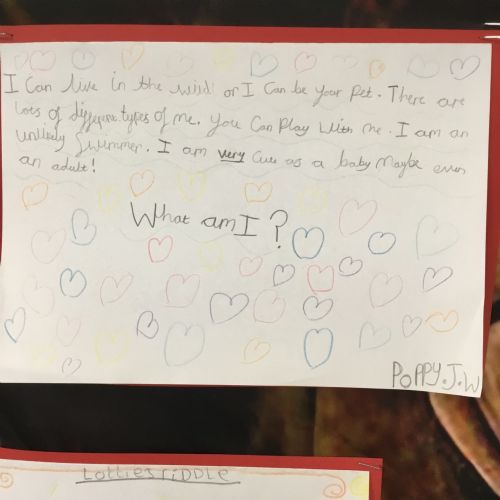 I Can live in the wild! or I Can be your Pet. There are
lots of different types of me. You Can Play With me. I am an
unlikely Swimmer. I am very Cute as a baby Maybe even
an adult!
What am I?
POPPY.J.W
Lotties riddle